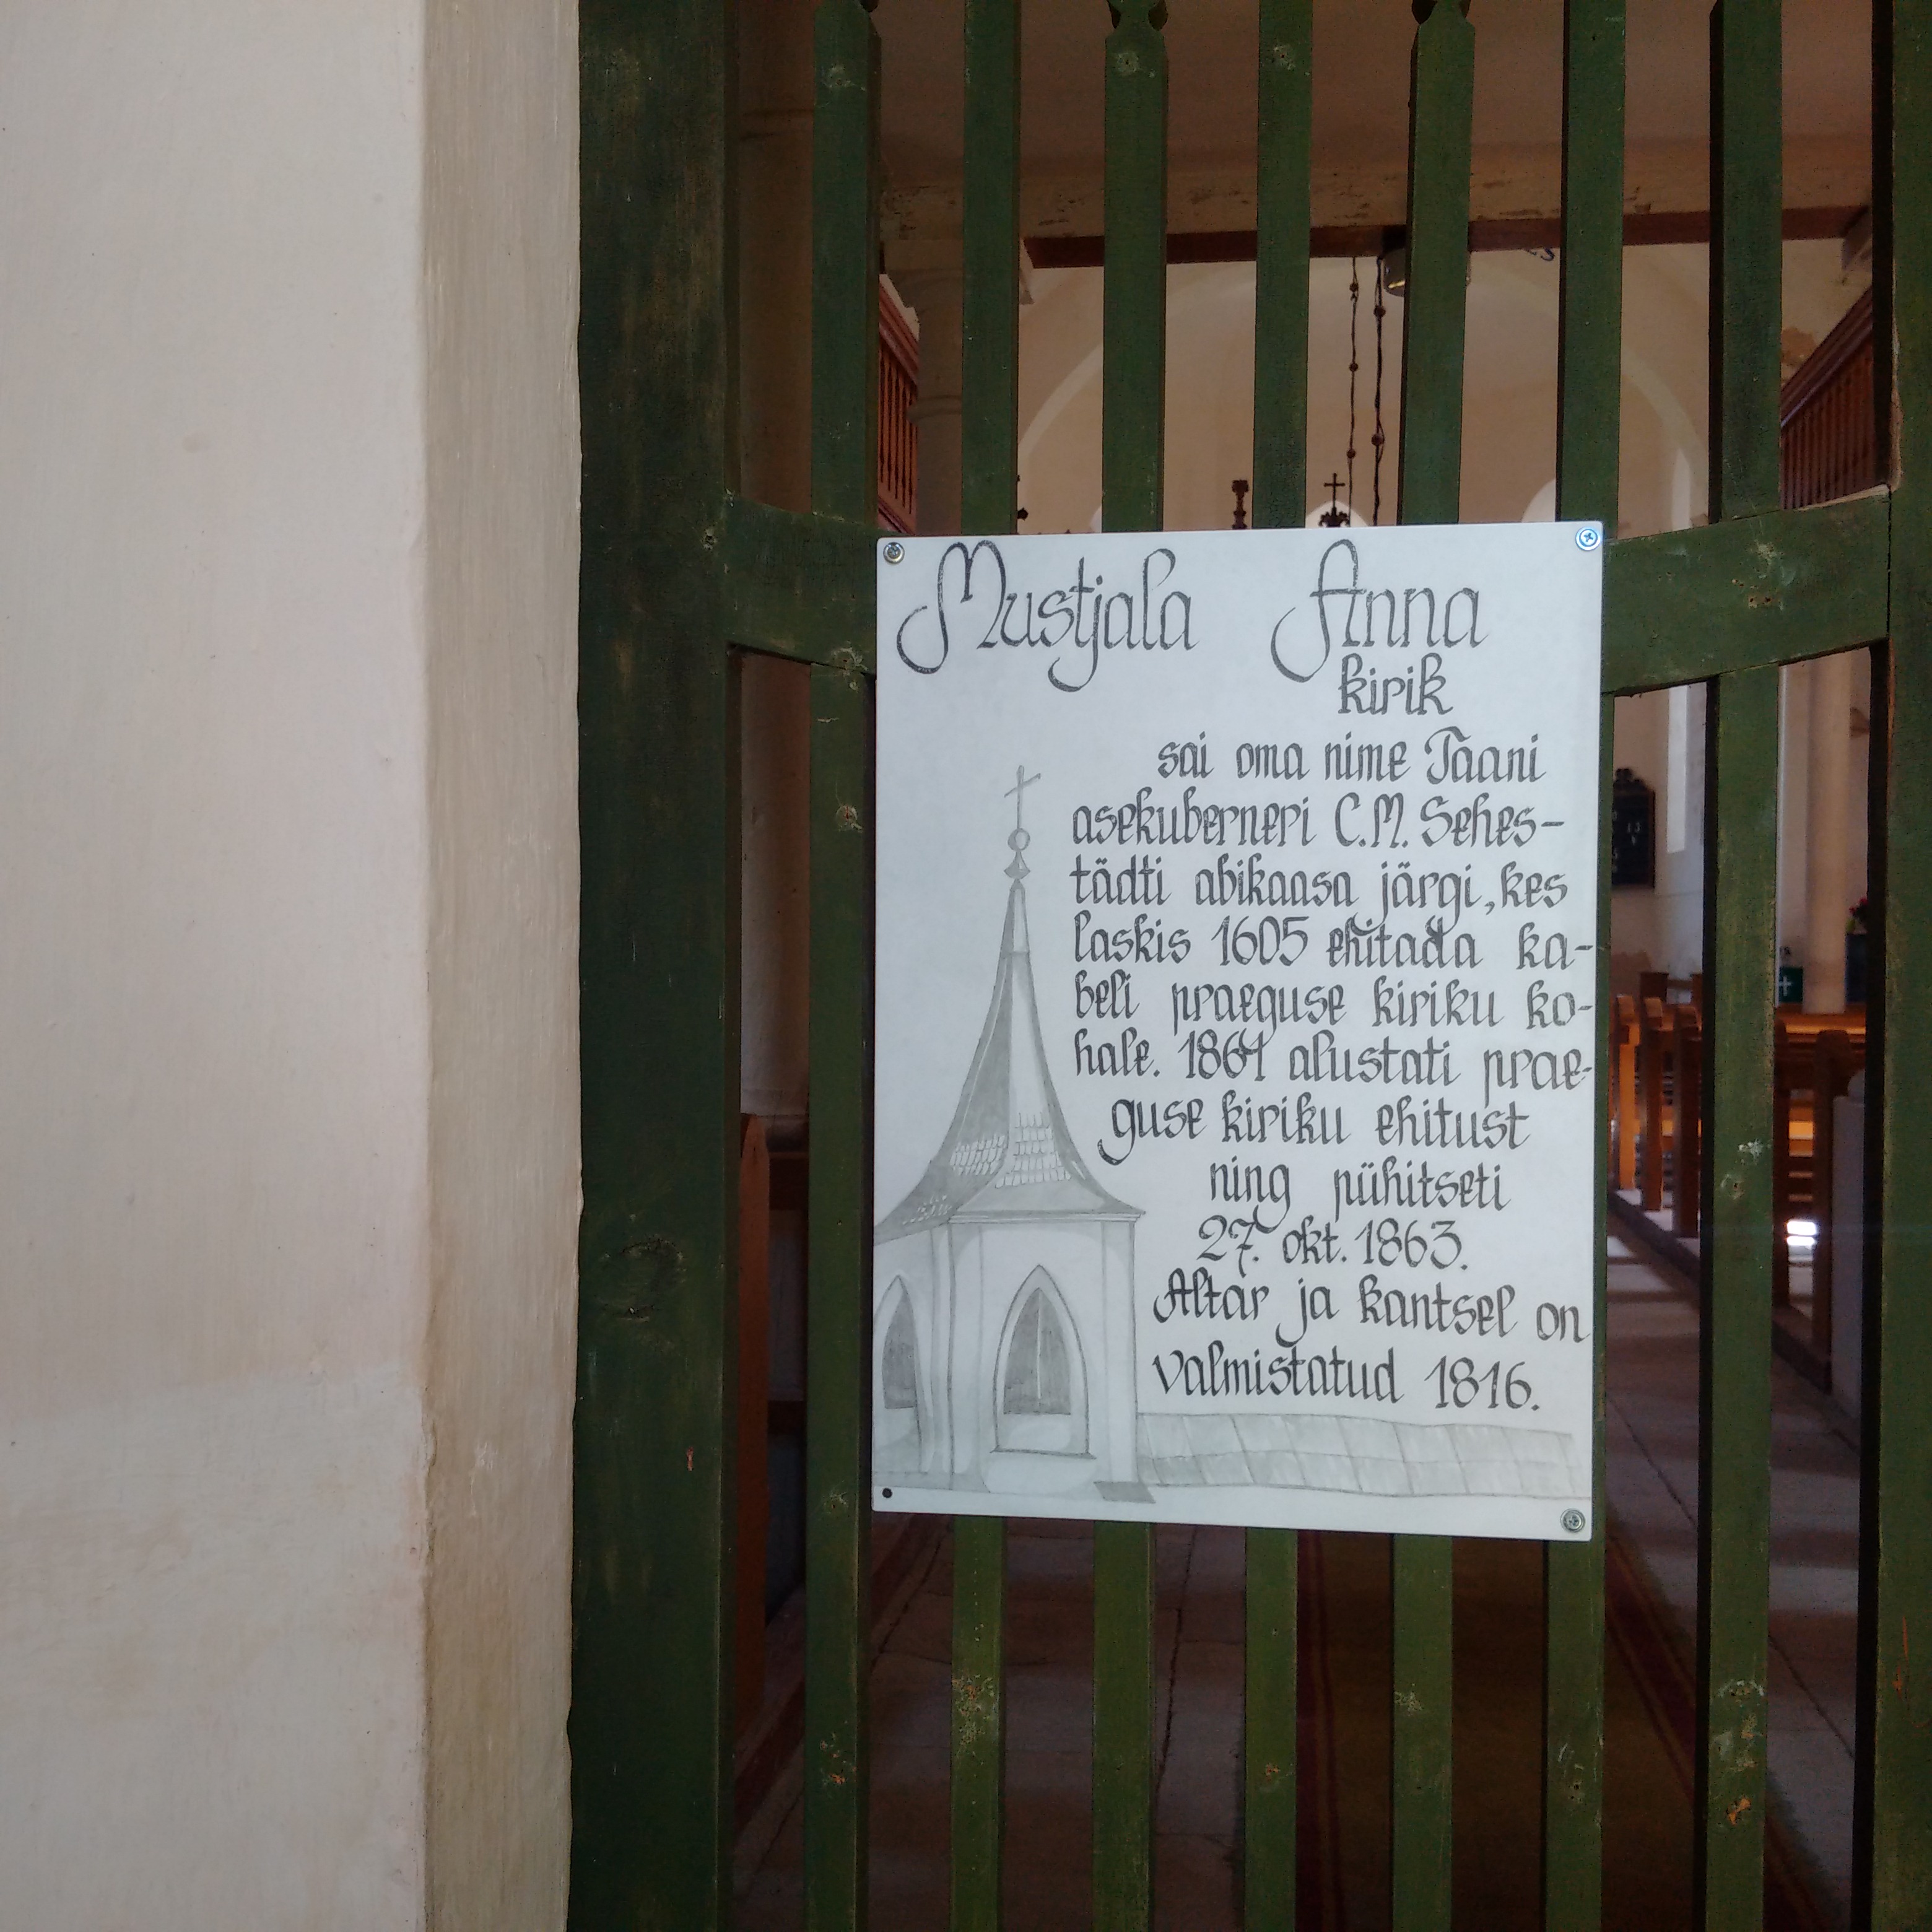 Mustjala Anna
kirik
sai oma nime Taani
asekuberneri C.M. Sehes-
tädti abikaasa järgi, kes
laskis 1605 ehitada ka-
beli praeguse kiriku ko-
hale. 1861 alustati prae-
guse kiriku ehitust
ning pühitseti
27. okt. 1863.
Altar ja kantsel on
valmistatud 1816.